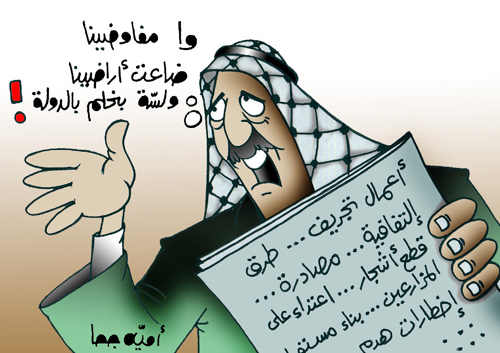 وا مفاوضينا
ضاعت أراضينا
ولسّة بنحلم بالدولة !
أعمال تجريف ... طرق
إلتفافية ... مصادرة ...
قطع أشجار ... اعتداء على
المزارعين ... بناء مستعمرات
إخطارات هدم
أميّه جحا